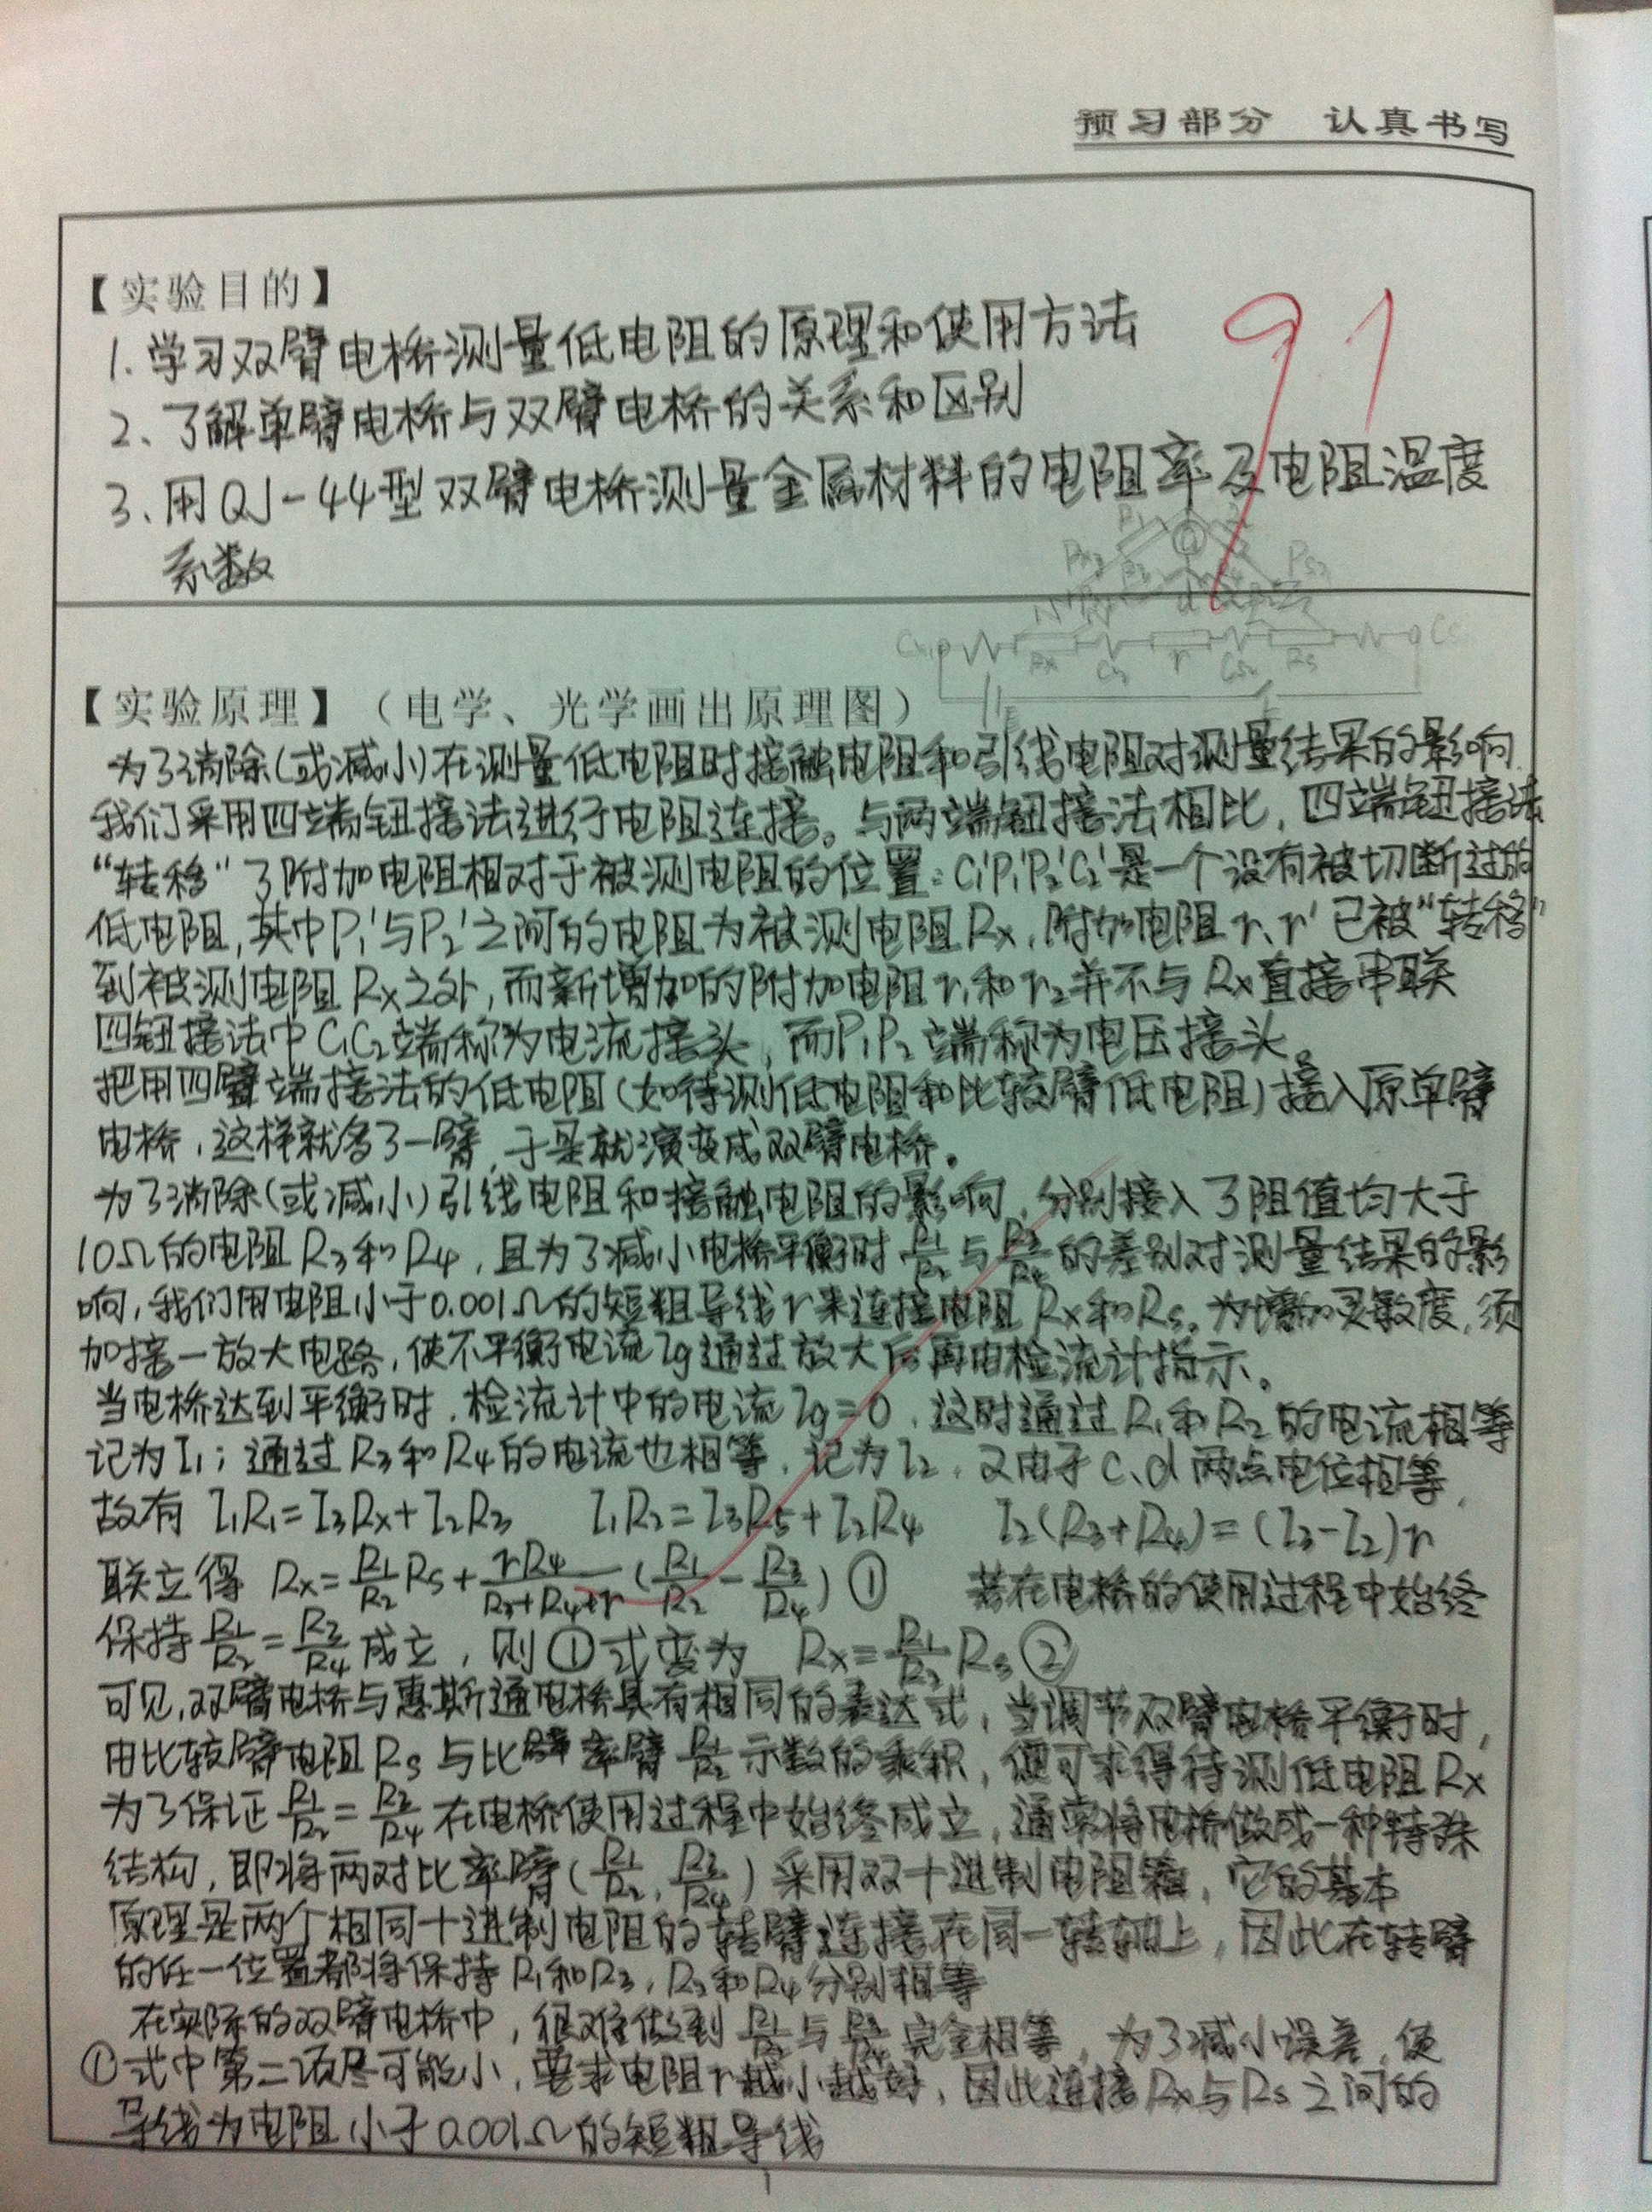 预习部分 认真书写
91
【实验目的】
1.学习双臂电桥测量低电阻的原理和使用方法
2、了解单臂电桥与双臂电桥的关系和区别
3、用QJ-44型双臂电桥测量金属材料的电阻率及电阻温度
系数
【实验原理】（电学、光学画出原理图）
为了消除(或减小)在测量低电阻时接触电阻和引线电阻对测量结果的影响,
我们采用四端钮接法进行电阻连接。与两端钮接法相比,四端钮接法
“转移”了附加电阻相对于被测电阻的位置:C₁'P₁'P₂'C₂'是一个没有被切断过的
低电阻,其中P₁'与P₂'之间的电阻为被测电阻Rx,附加电阻r、r'已被“转移”
到被测电阻Rx之外,而新增加的附加电阻r₁和r₂并不与Rx直接串联
四钮接法中C₁C₂端称为电流接头,而P₁P₂端称为电压接头。
把用四臂端接法的低电阻(如待测低电阻和比较臂低电阻)接入原单臂
电桥,这样就多了一臂,于是就演变成双臂电桥。
为了消除(或减小)引线电阻和接触电阻的影响,分别接入了阻值均大于
10Ω的电阻R₃和R₄,且为了减小电桥平衡时R₁/R₂与R₃/R₄的差别对测量结果的影
响,我们用电阻小于0.001Ω的短粗导线r来连接电阻Rx和Rs。为增加灵敏度,须
加接一放大电路,使不平衡电流Ig通过放大后再由检流计指示。
当电桥达到平衡时,检流计中的电流Ig=0,这时通过R₁和R₂的电流相等
记为I₁;通过R₃和R₄的电流也相等,记为I₂,又由于c、d两点电位相等,
故有 I₁R₁=I₃Rx+I₂R₃ I₁R₂=I₃Rs+I₂R₄ I₂(R₃+R₄)=(I₃-I₂)r
联立得 Rx=R₁/R₂ Rs+rR₄/(R₃+R₄+r)(R₁/R₂-R₃/R₄)① 若在电桥的使用过程中始终
保持R₁/R₂=R₃/R₄成立,则①式变为 Rx=R₁/R₂ Rs②
可见,双臂电桥与惠斯通电桥具有相同的表达式,当调节双臂电桥平衡时,
由比较臂电阻Rs与比率臂R₁/R₂示数的乘积,便可求得待测低电阻Rx
为了保证R₁/R₂=R₃/R₄在电桥使用过程中始终成立,通常将电桥做成一种特殊
结构,即将两对比率臂(R₁/R₂,R₃/R₄)采用双十进制电阻箱,它的基本
原理是两个相同十进制电阻的转臂连接在同一转轴上,因此在转臂
的任一位置都将保持R₁和R₃,R₂和R₄分别相等
在实际的双臂电桥中,很难做到R₁/R₂与R₃/R₄完全相等,为了减小误差,使
①式中第二项尽可能小,要求电阻r越小越好,因此连接Rx与Rs之间的
导线为电阻小于0.001Ω的短粗导线
1